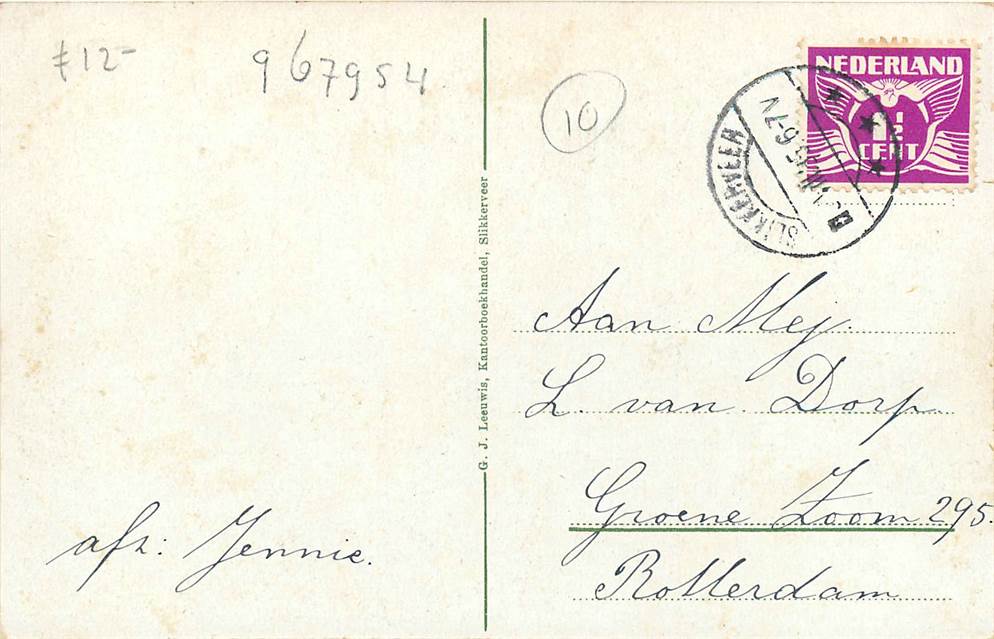 £12-
967954
10
NEDERLAND
1½
CENT
SLIKKERVEER
6-7 V
G. J. Leeuwis, Kantoorboekhandel, Slikkerveer
Aan Mej.
L. van Dorp
Groene Zoom 295.
Rotterdam
afz: Jennie.